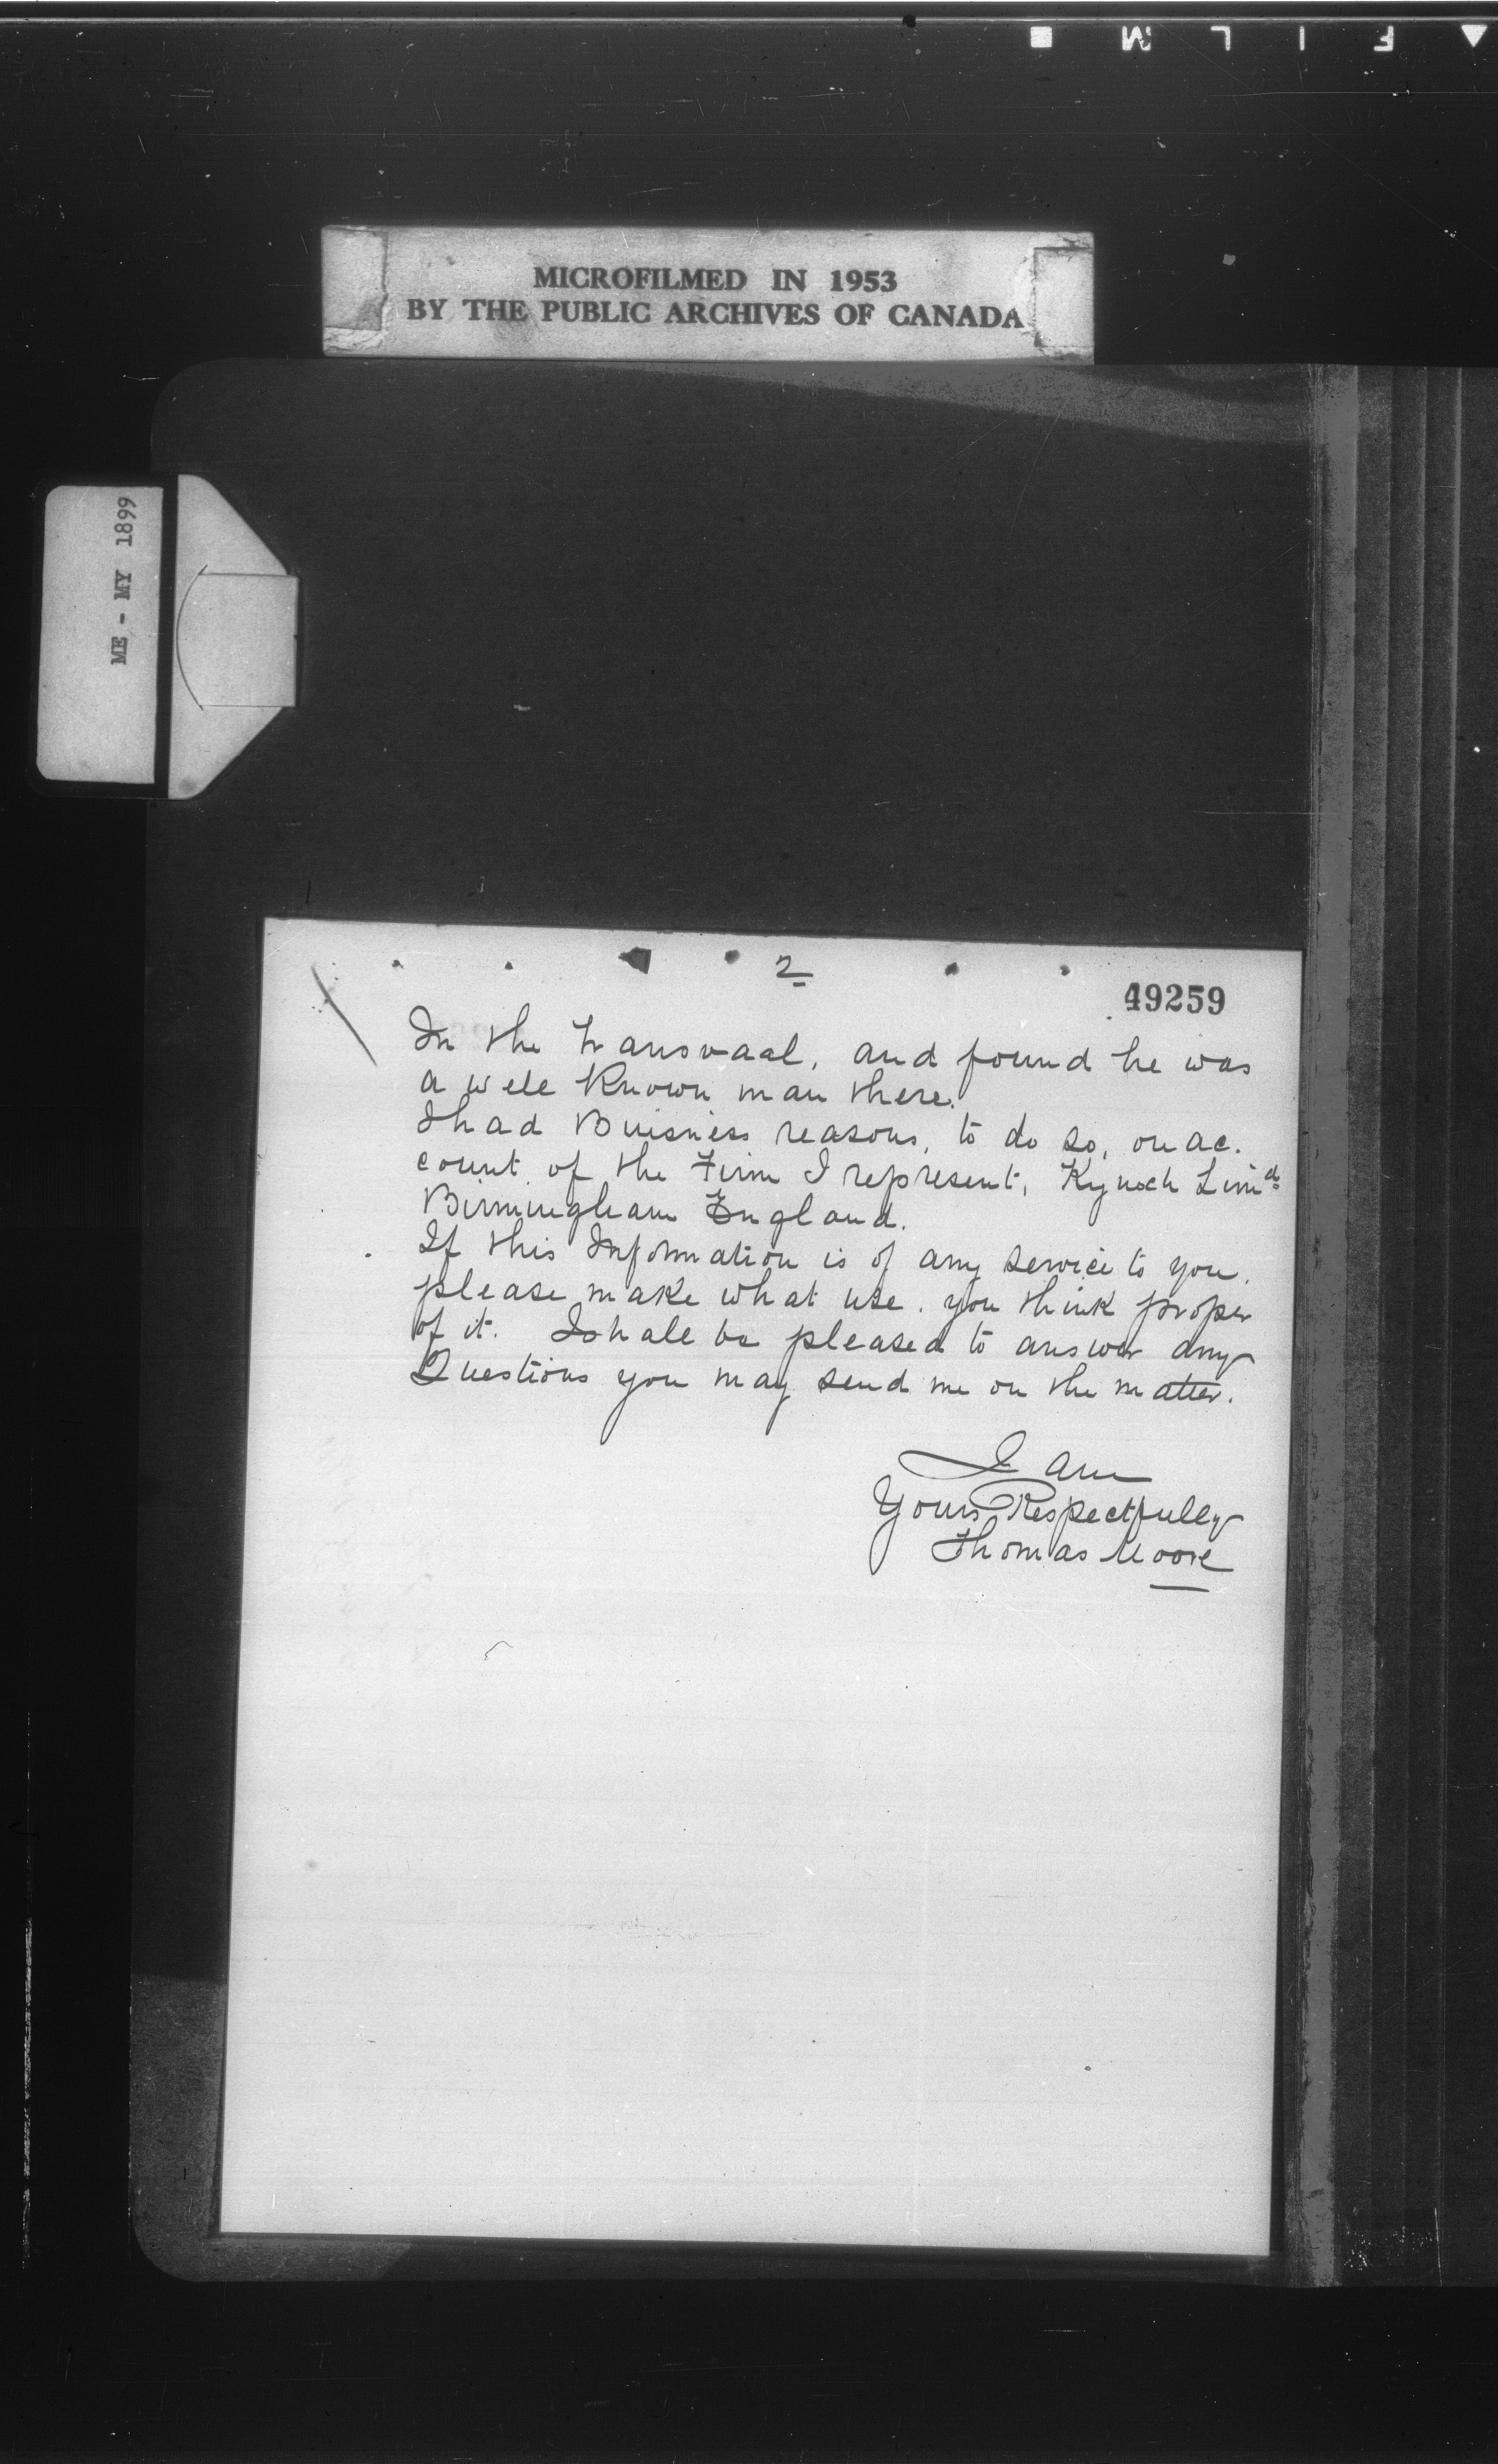 FILM
MICROFILMED IN 1953
BY THE PUBLIC ARCHIVES OF CANADA
ME - MY 1899
2
49259
In the Transvaal, and found he was
a well Known man there.
I had Buisness reasons, to do so, on ac.
count of the Firm I represent, Kynoch Limd
Birmingham England.
If this Information is of any service to you.
please make what use. you think proper
of it. I shall be pleased to answer any
Questions you may send me on the matter.
I am
Yours Respectfully
Thomas Moore